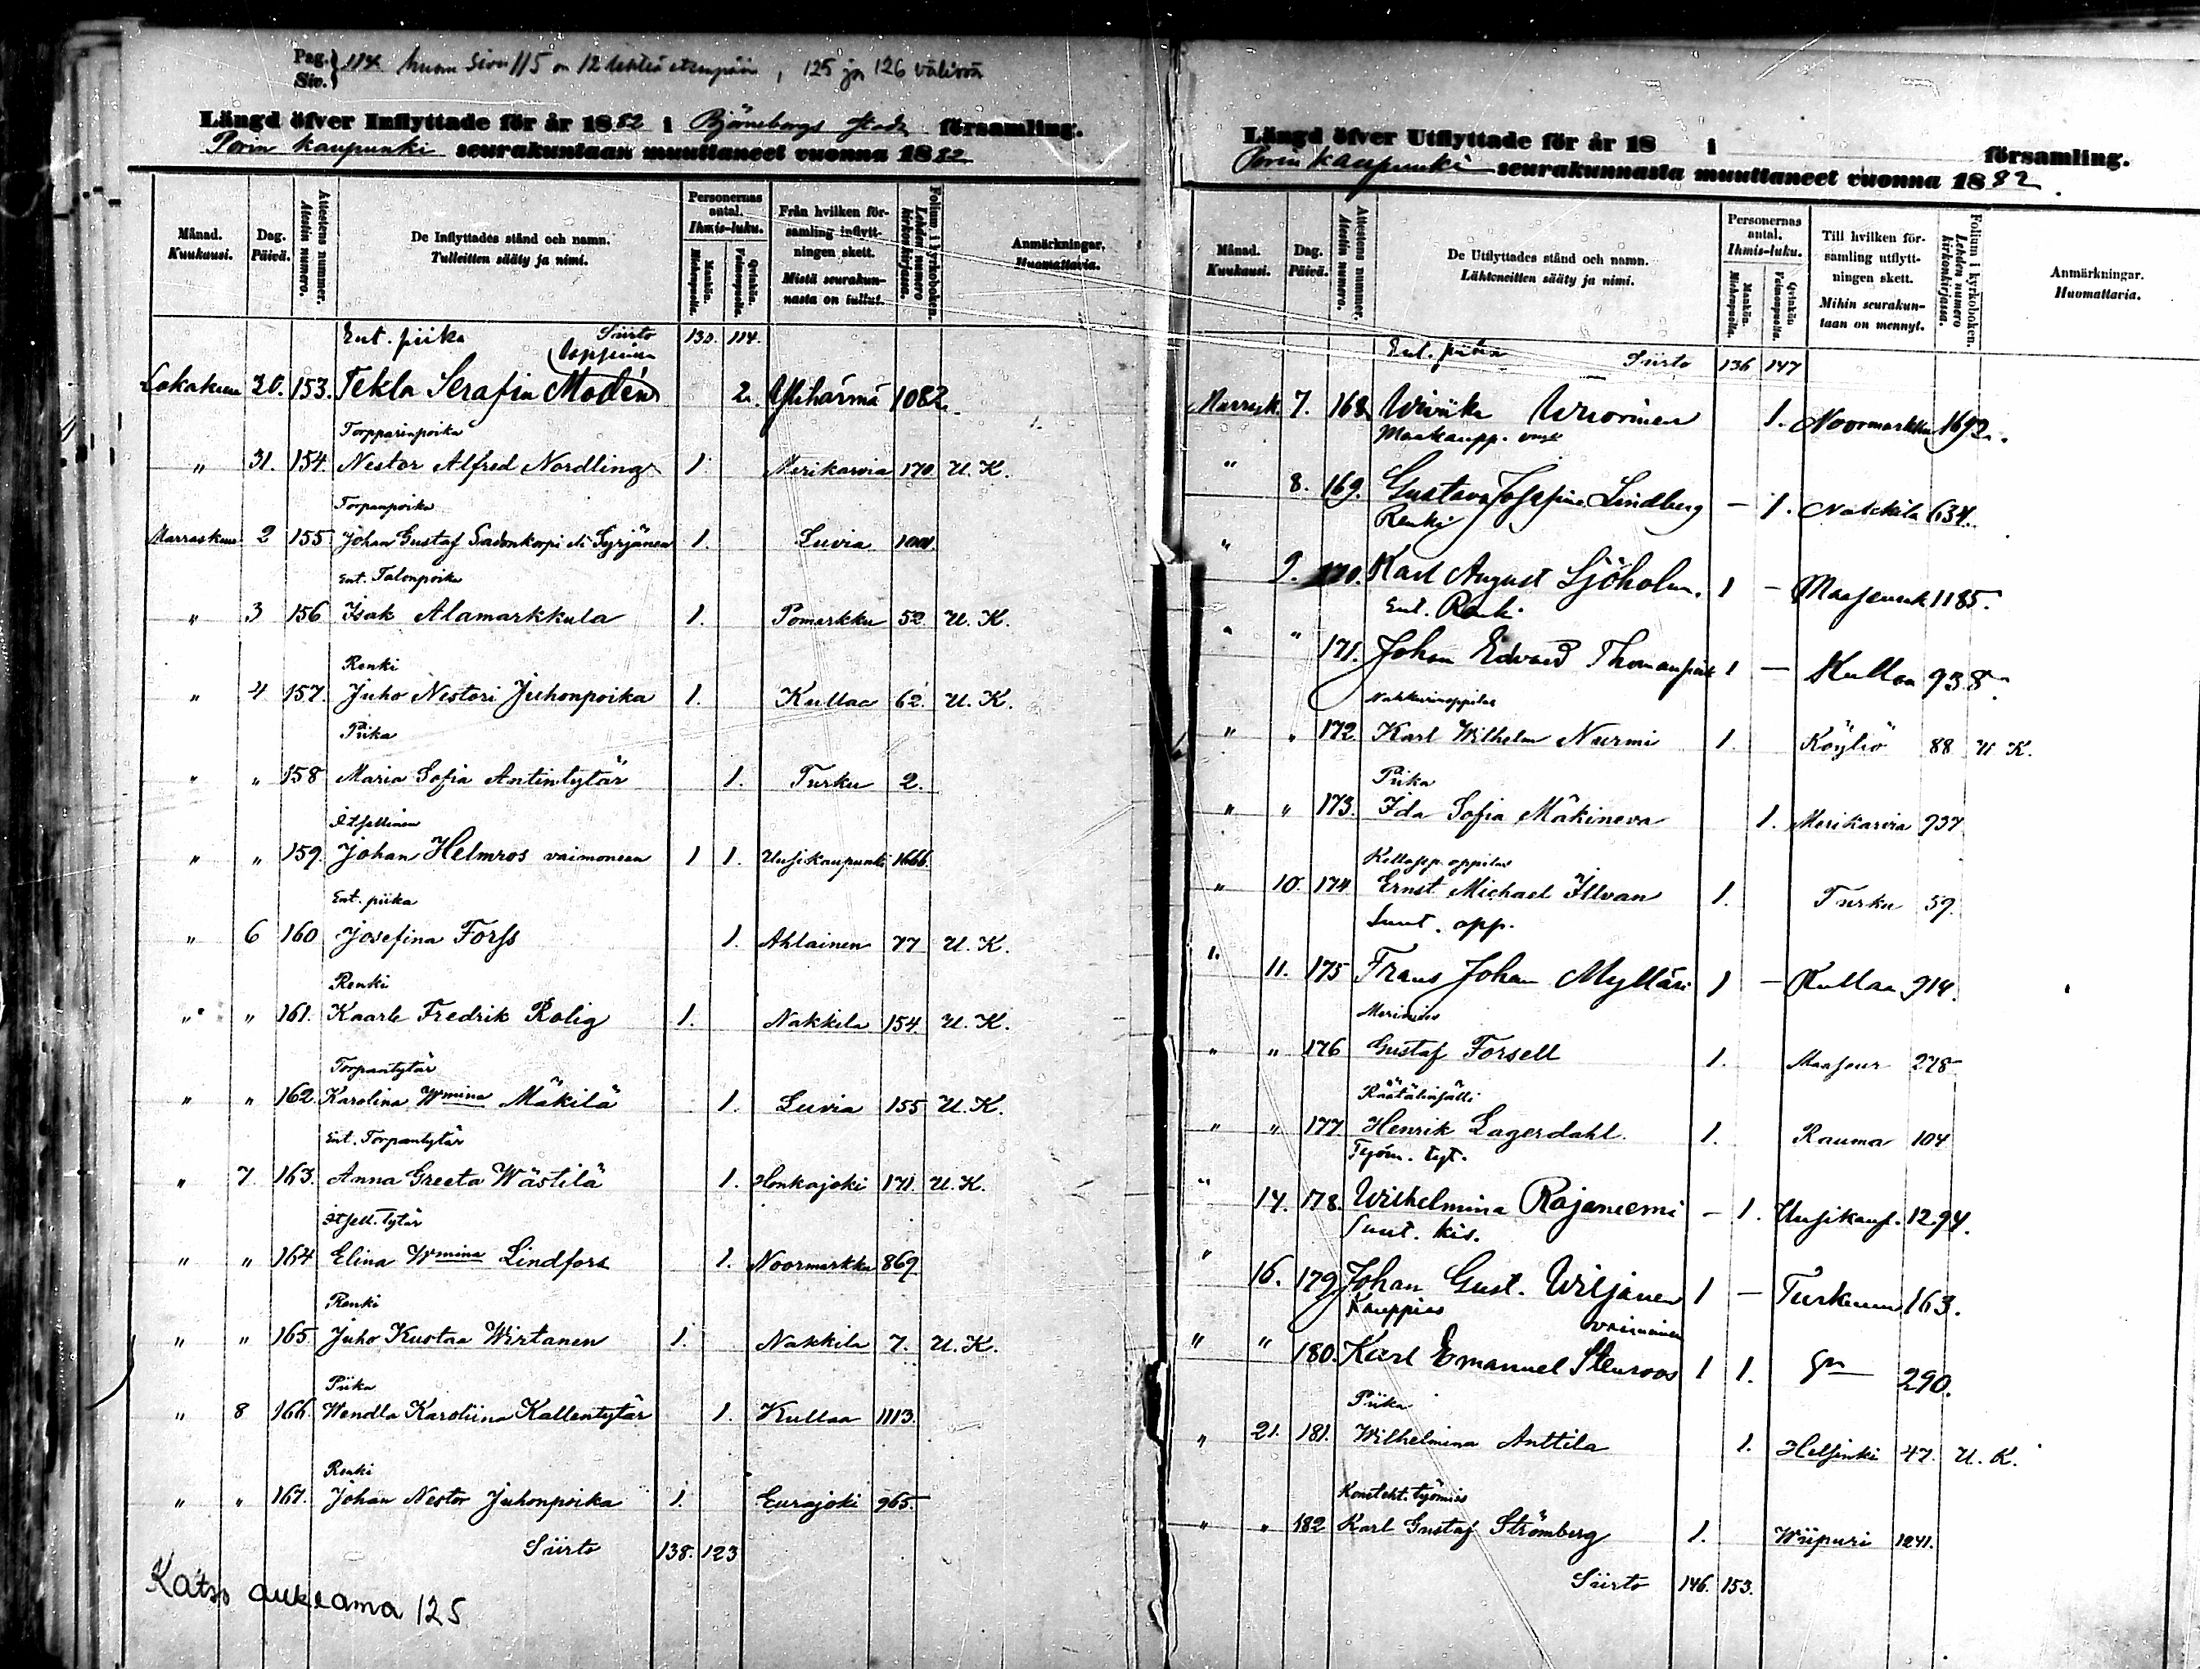 Pag. 114 sivu 115 on 12 lehteä , 125 ja 126 välissä
Siv.
Längd öfver Inflyttade för år 1882 i Björneborgs stads församling.
Porin kaupunki seurakuntaan muuttaneet vuonna 1882
Månad. Kuukausi.
Dag. Päivä.
Attestens nummer. Atestin numero.
De Inflyttades stånd och namn. Tulleitten sääty ja nimi.
Personernas antal. Ihmis-luku.
Mankön. Miehenpuolia.
Qvinkön. Vaimonpuolia.
Från hvilken församling inflyttningen skett. Mistä seurakunnasta on tullut.
Folium i kyrkoboken. Lehden numero kirkonkirjassa.
Anmärkningar. Huomattavia.
Ent. piika Siirto 130. 114.
Lokakuu 30. 153. Tekla Serafia Modén 2. Ylihärmä 1082.
Torpparinpoika
" 31. 154. Nestor Alfred Nordling 1. Merikarvia 170 U. K.
Torpanpoika
Marraskuu 2 155 Johan Gustaf Sadonkorpi eli Syrjänen 1. Luvia
Ent. Talonpoika
" 3 156 Isak Alamarkkula 1. Pomarkku 52. U. K.
Renki
" 4 157. Juho Nestori Juhonpoika 1. Kullaa 62. U. K.
Piika
" " 158 Maria Sofia Antintytär 1. Turku 2.
Itsellinen
" " 159. Johan Helmros vaimoneen 1 1. Uusikaupunki 1666.
Ent. piika
" 6 160 Josefina Forss 1. Ahlainen 77 U. K.
Renki
" " 161. Kaarle Fredrik Rolig 1. Nakkila 154. U. K.
Torpantytär
" " 162. Karolina Wmina Mäkilä 1. Luvia 155 U. K.
Ent. Torpantytär
" 7. 163. Anna Greeta Wästilä 1. Honkajoki 171. U. K.
Itsell. tytär
" " 164 Elina Wmina Lindfors 1. Noormarkku 869
Renki
" " 165 Juho Kustaa Wirtanen 1. Nakkila 7. U. K.
Piika
" 8 166. Wendla Karoliina Kallentytär 1. Kullaa 1113.
Renki
" " 167. Johan Nestor Juhonpoika 1. Eurajoki 965.
Siirto 138. 123
Katso aukeama 125
Längd öfver Utflyttade för år 18 i församling.
Porin kaupunki seurakunnasta muuttaneet vuonna 1882.
Månad. Kuukausi.
Dag. Päivä.
Attestens nummer. Atestin numero.
De Utflyttades stånd och namn. Lähteneitten sääty ja nimi.
Personernas antal. Ihmis-luku.
Mankön. Miehenpuolia.
Qvinkön. Vaimonpuolia.
Till hvilken församling utflyttningen skett. Mihin seurakuntaan on mennyt.
Folium i kyrkoboken. Lehden numero kirkonkirjassa.
Anmärkningar. Huomattavia.
Ent. piika Siirto 136 147
Marrask. 7. 168. Wiviika Wuorinen 1. Noormarkku 1692.
Maakaupp.
" 8. 169. Gustava Josefina Lindberg – 1. Nakkila 634.
Renki
" 9. 170. Karl August Sjöholm. 1 – 1185.
Ent. Renki
" " 171. Johan Edvard Thomanpoik 1 – Kullaa 938.
Nahkurinoppilas
" " 172. Karl Wilhelm Nurmi 1. Köyliö 88 U K.
Piika
" " 173. Ida Sofia Mäkineva 1. Merikarvia 737
Kellosep. oppilas
" 10. 174 Ernst Michael Illvan 1. Turku 59.
Suut. opp.
" 11. 175 Frans Johan Mylläri 1 – Kullaa 914.
Merimies
" " 176 Gustaf Forsell 1. Maaseur 278
Räätälinsälli
" " 177. Henrik Lagerdahl. 1. Rauma 104
Työm. tyt.
" 14. 178. Wilhelmina Rajaniemi – 1. Uusikaup. 1294.
Suut. kis.
" 16. 179. Johan Gust. Wiljanen 1 – Turkuun 163.
Kauppias vaimoineen
" " 180. Karl Emanuel Stenroos 1 1. 290.
Piika
" 21. 181. Wilhelmina Anttila 1. Helsinki 47. U. K.
Konsteht. työmies
" " 182 Karl Gustaf Strömberg 1. Wiipuri 1241.
Siirto 146. 153.